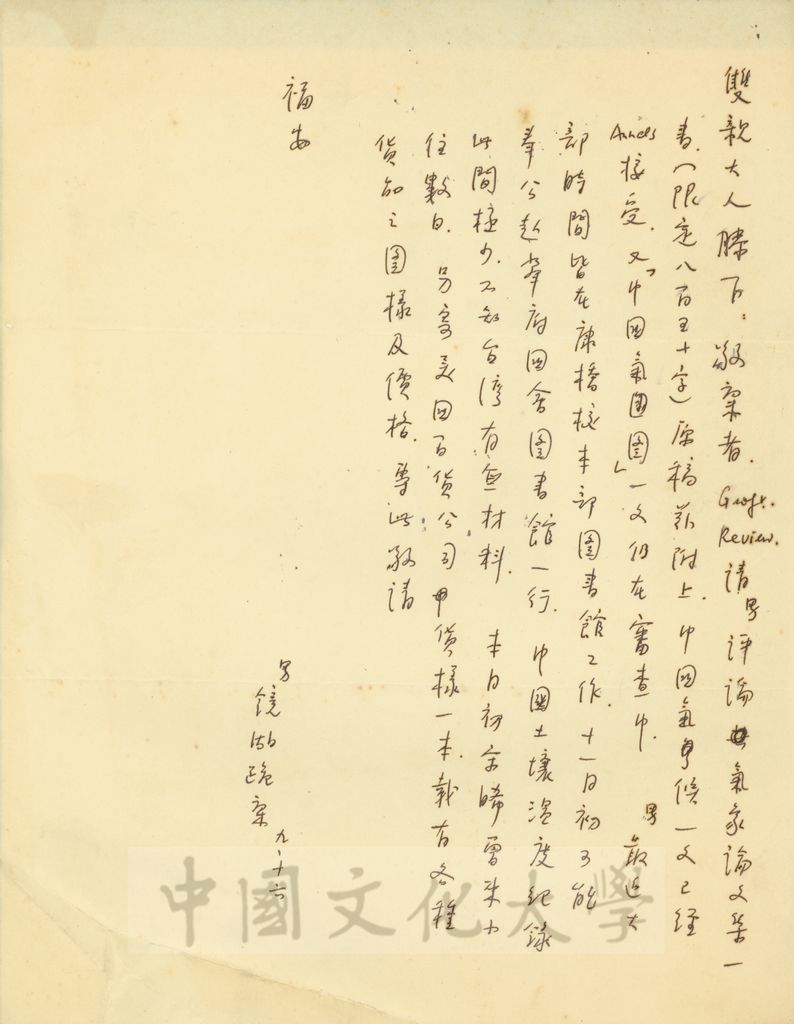 雙親大人膝下：敬稟者．Geogr. Review. 請男評論氣象論文第一
書．（限定八百五十字）原稿茲附上．中國氣候一文已經
Annals接受．又「中國氣團圖」一文仍在審查中．男最近大
部時間皆在康橋校本部圖書館工作．十一月初可能
奉公赴華府國會圖書館一行．中國土壤溫度紀錄
此間極少．不知台灣有無材料．本月初余晞曾來小
住數日．另寄美國百貨公司貨樣一本．載有各種
貨品之圖樣及價格．專此敬請
福安
男鏡湖跪稟 九、十六
中國文化大學